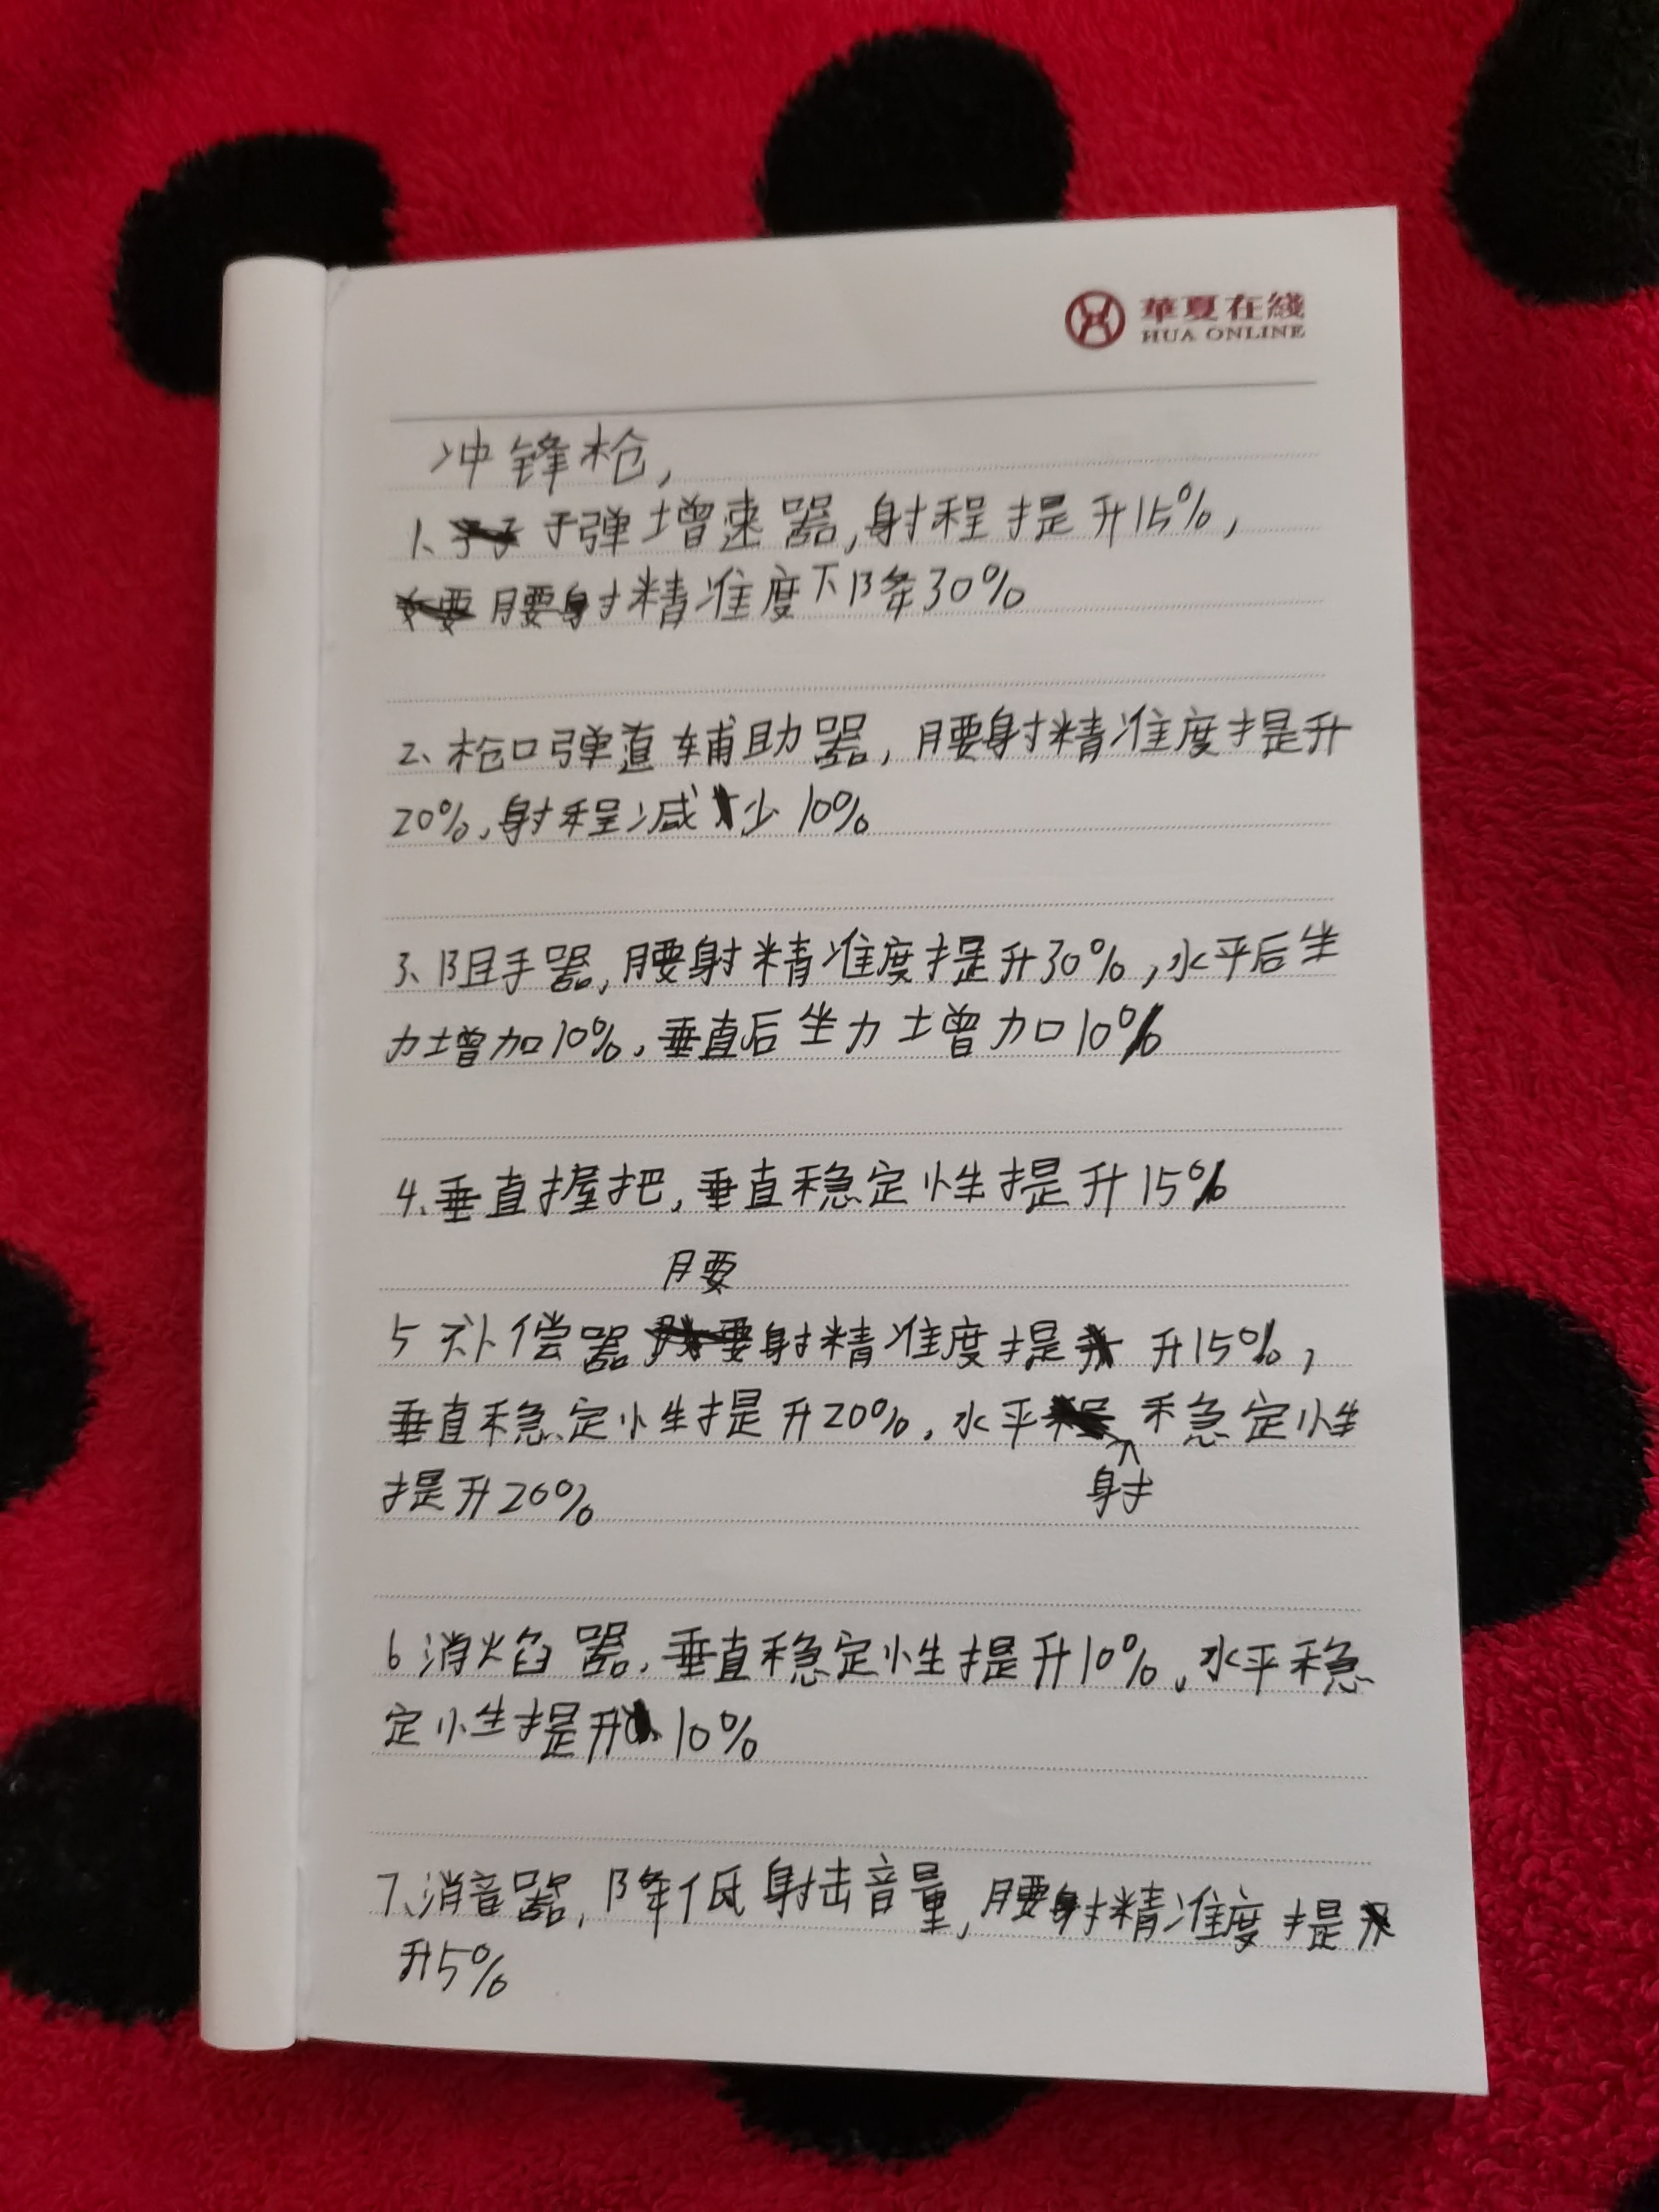 華夏在綫
HUA ONLINE
冲锋枪,
1、子弹增速器,射程提升15%,
腰射精准度下降30%
2、枪口弹道辅助器,腰射精准度提升
20%,射程减少10%
3、阻手器,腰射精准度提升30%,水平后坐
力增加10%,垂直后坐力增加10%
4、垂直握把,垂直稳定性提升15%
腰
5补偿器射精准度提升15%,
垂直稳定性提升20%,水平稳定性
射
提升20%
6消焰器,垂直稳定性提升10%,水平稳
定性提升10%
7、消音器,降低射击音量,腰射精准度提
升5%